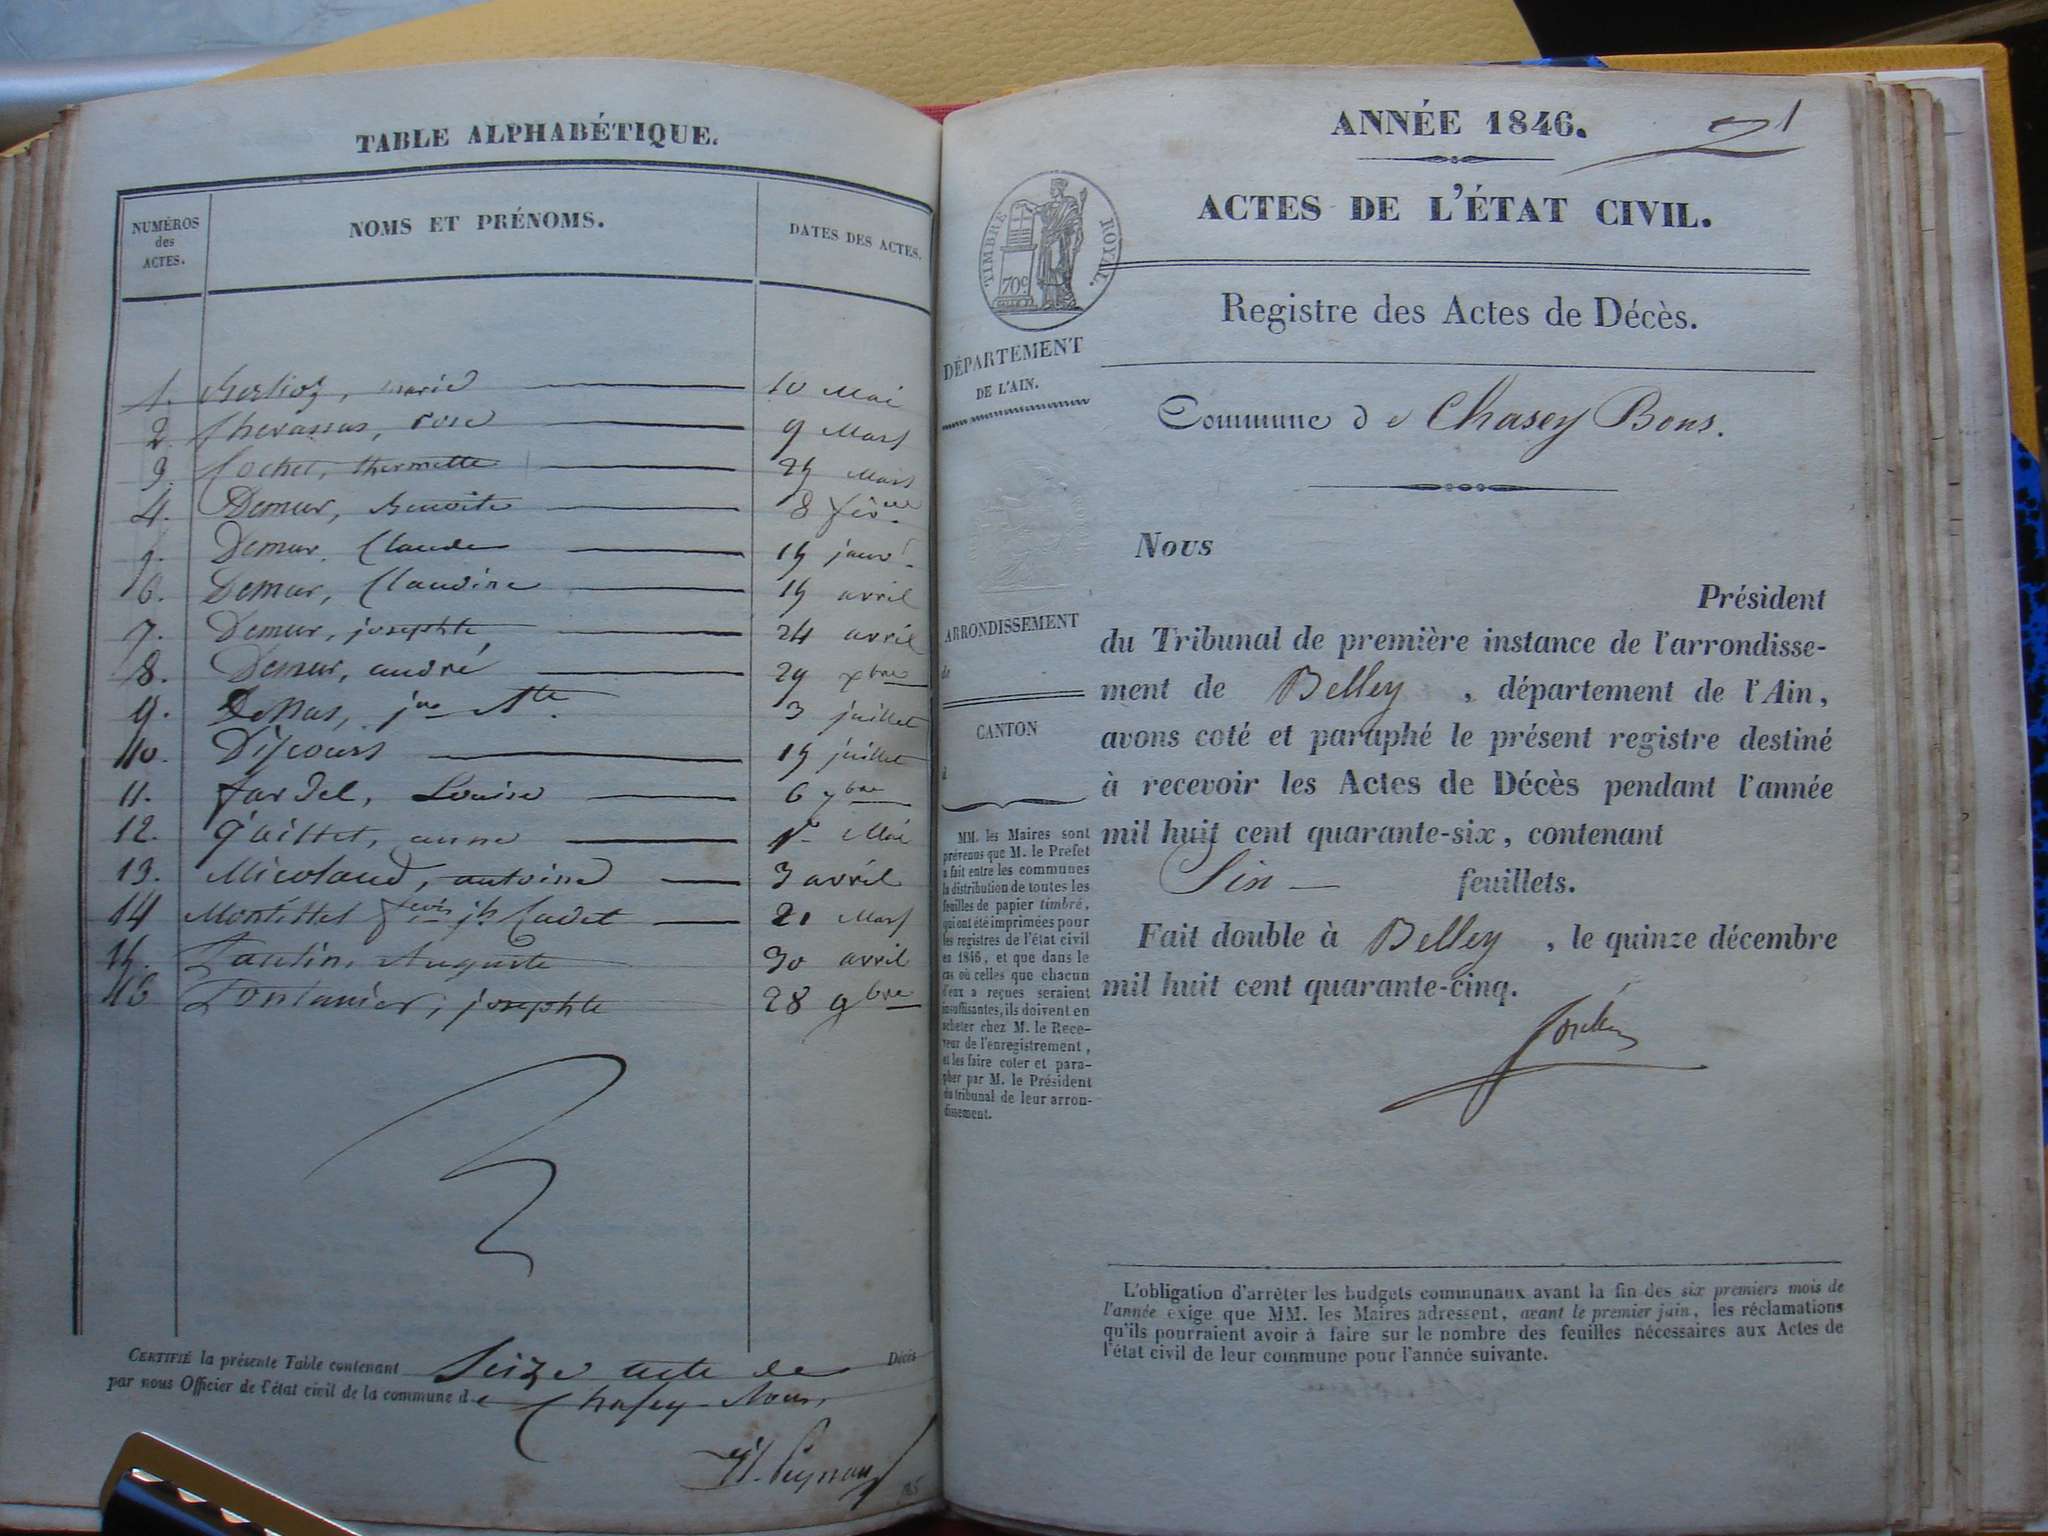 TABLE ALPHABÉTIQUE.
NUMÉROS des ACTES. NOMS ET PRÉNOMS. DATES DES ACTES.
1. Berlioz, marie 10 Mai
2. Chevassus, rose 9 Mars
3. Cochet, thermette 25 Mars
4. Demur, Benoite 8 fév
5. Demur, Claude 15 janv
6. Demur, Claudine 15 avril
7. Demur, josephte 24 avril
8. Demur, andré 29 xbre
9. 3 juillet
10. Discours 15 juillet
11. fardel, Louise 6 7bre
12. anne 1er Mai
13. Micoland, antoine 3 avril
14 Montillet Cadet 21 Mars
15. Tantin, Auguste 30 avril
16 josephte 28 9bre
CERTIFIÉ la présente Table contenant Seize acte de Décès
par nous Officier de l'état civil de la commune de Chasey Bons,
ANNÉE 1846.
1
ACTES DE L'ÉTAT CIVIL.
TIMBRE ROYAL.
70c
Registre des Actes de Décès.
DÉPARTEMENT
DE L'AIN.
Commune de Chasey Bons.
Nous
Président
du Tribunal de première instance de l'arrondisse-
ment de Belley, département de l'Ain,
avons coté et paraphé le présent registre destiné
à recevoir les Actes de Décès pendant l'année
mil huit cent quarante-six, contenant
Six feuillets.
Fait double à Belley, le quinze décembre
mil huit cent quarante-cinq.
ARRONDISSEMENT
de
CANTON
à
MM. les Maires sont
prévenus que M. le Préfet
a fait entre les communes
la distribution de toutes les
feuilles de papier timbré,
qui ont été imprimées pour
les registres de l'état civil
en 1846, et que dans le
cas où celles que chacun
d'eux a reçues seraient
insuffisantes, ils doivent en
acheter chez M. le Rece-
veur de l'enregistrement,
et les faire coter et para-
pher par M. le Président
du tribunal de leur arron-
dissement.
L'obligation d'arrêter les budgets communaux avant la fin des six premiers mois de
l'année exige que MM. les Maires adressent, avant le premier juin, les réclamations
qu'ils pourraient avoir à faire sur le nombre des feuilles nécessaires aux Actes de
l'état civil de leur commune pour l'année suivante.